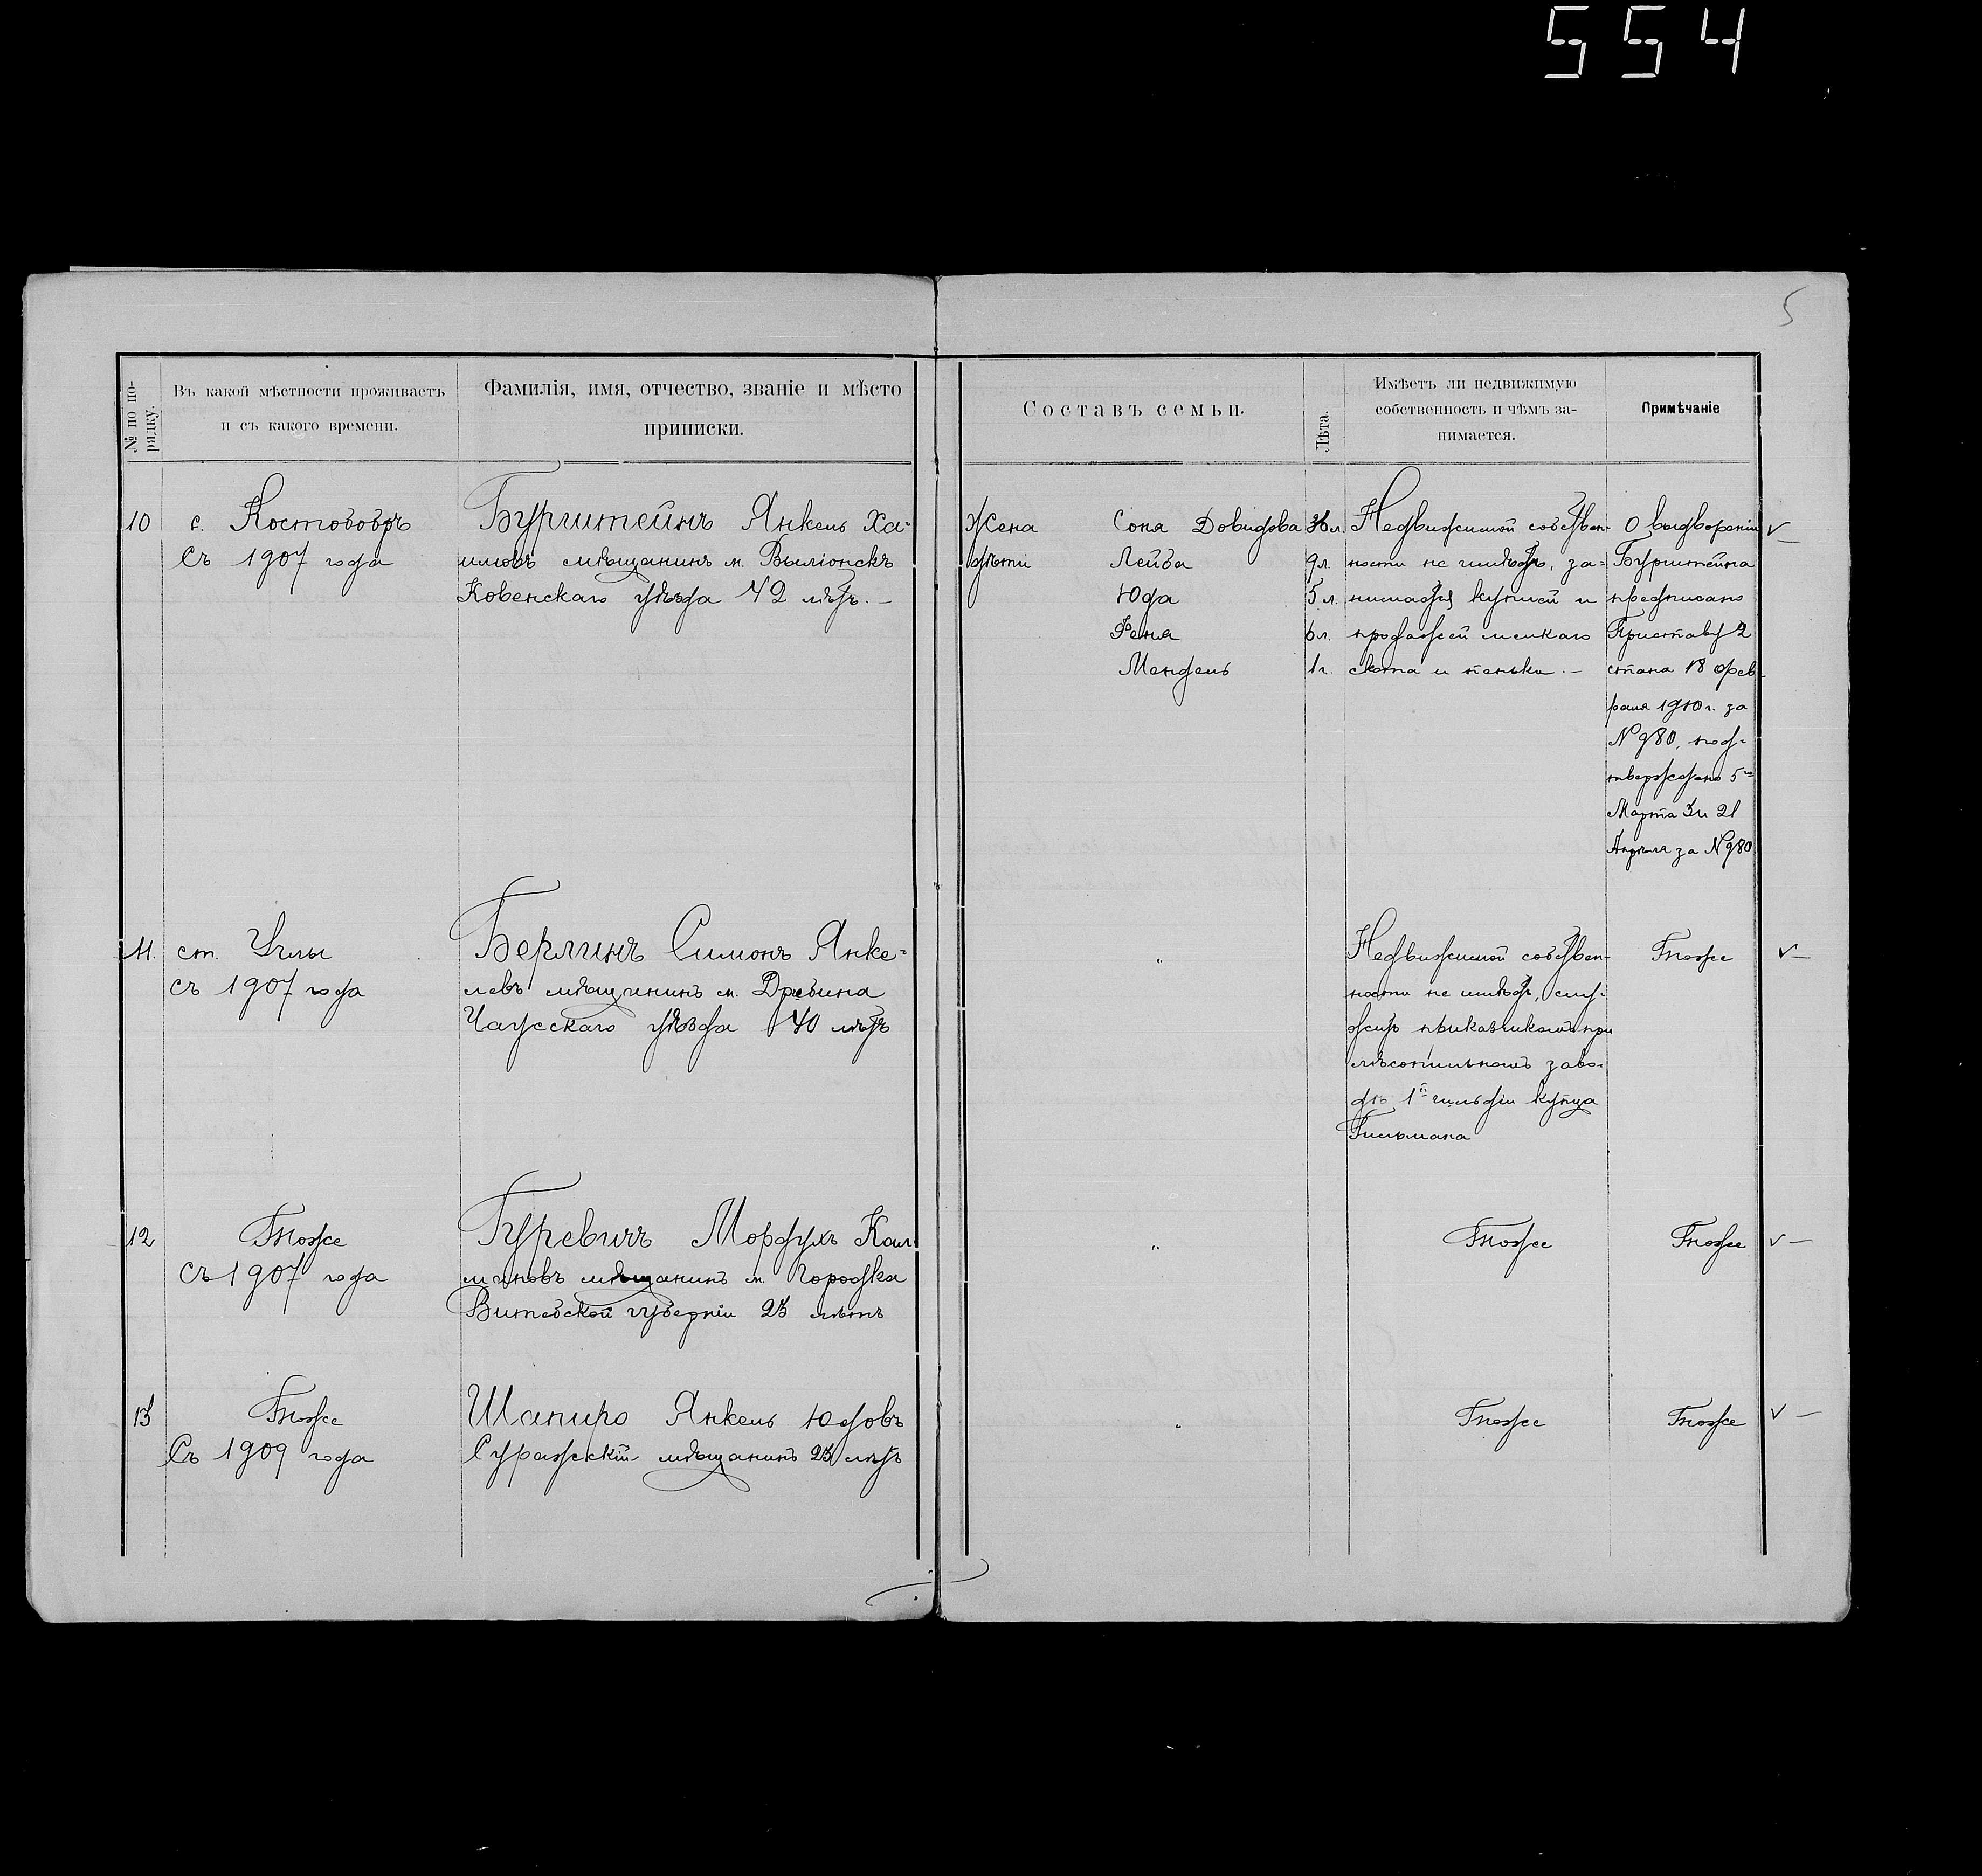 554
5
№ по по-
рядку.
Въ какой мѣстности проживаетъ
и съ какого времени.
Фамилія, имя, отчество, званіе и мѣсто
приписки.
Составъ семьи.
Лѣта.
Имѣетъ ли недвижимую
собственность и чѣмъ за-
нимается.
Примѣчаніе
10
с. Костобобръ
Съ 1907 года
Бурштейнъ Янкель Ха-
имовъ мѣщанинъ м.
Ковенскаго уѣзда 42 лѣтъ. —
Жена Соня Довидова 36 л.
дѣти Лейба 9 л.
Юда 5 л.
Феня 6 л.
Мендель 1 г.
Недвижимой собствен-
ности не имѣетъ, за-
нимается куплей и
продажей мелкаго
скота и пеньки. —
О выдвореніи
Бурштейна
предписано
Приставу 2
стана 18 фев-
раля 1910 г. за
№ 980, под-
тверждено 5го
Марта и 21
Апрѣля за № 980
11.
ст. Углы
съ 1907 года
Берлинъ Симонъ Янке-
левъ мѣщанинъ м. Дрибина
Чаусскаго уѣзда 40 лѣтъ
"
Недвижимой собствен-
ности не имѣетъ, слу-
житъ приказчикомъ при
лѣсопильномъ заво-
дѣ 1й гильдіи купца
Гильмана
Тоже
12
Тоже
Съ 1907 года
Гуревичъ Мордухъ Кал-
мановъ мѣщанинъ м. Городка
Витебской губерніи 23 лѣтъ
"
Тоже
Тоже
13
Тоже
Съ 1909 года
Шапиро Янкель Юдовъ
Суражскій мѣщанинъ 23 лѣтъ
"
Тоже
Тоже